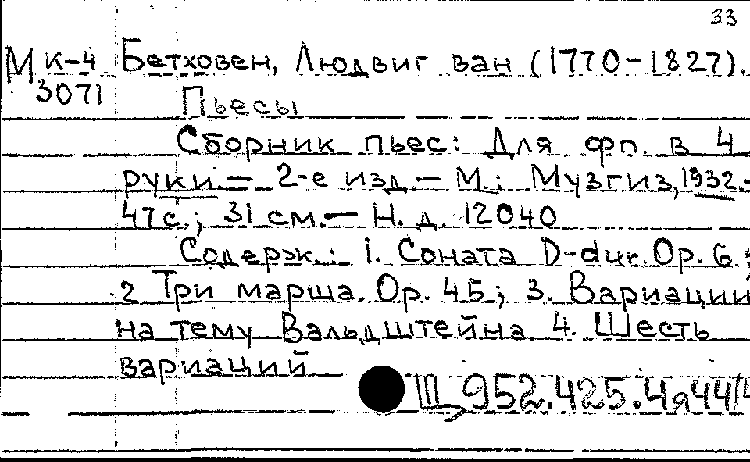 33
М К-4 Бетховен, Людвиг ван (1770-1827).
3071 Пьесы
Сборник пьес: Для фп. в 4
руки. - 2-е изд. - М.: Музгиз, 1932.-
47 с.; 31 см. - Н. д. 12040
Содерж.: 1. Соната D-dur. Op. 6;
2 Три марша. Op. 45; 3. Вариации
на тему Вальдштейна 4. Шесть
вариаций
Щ 952.425.4я44/4